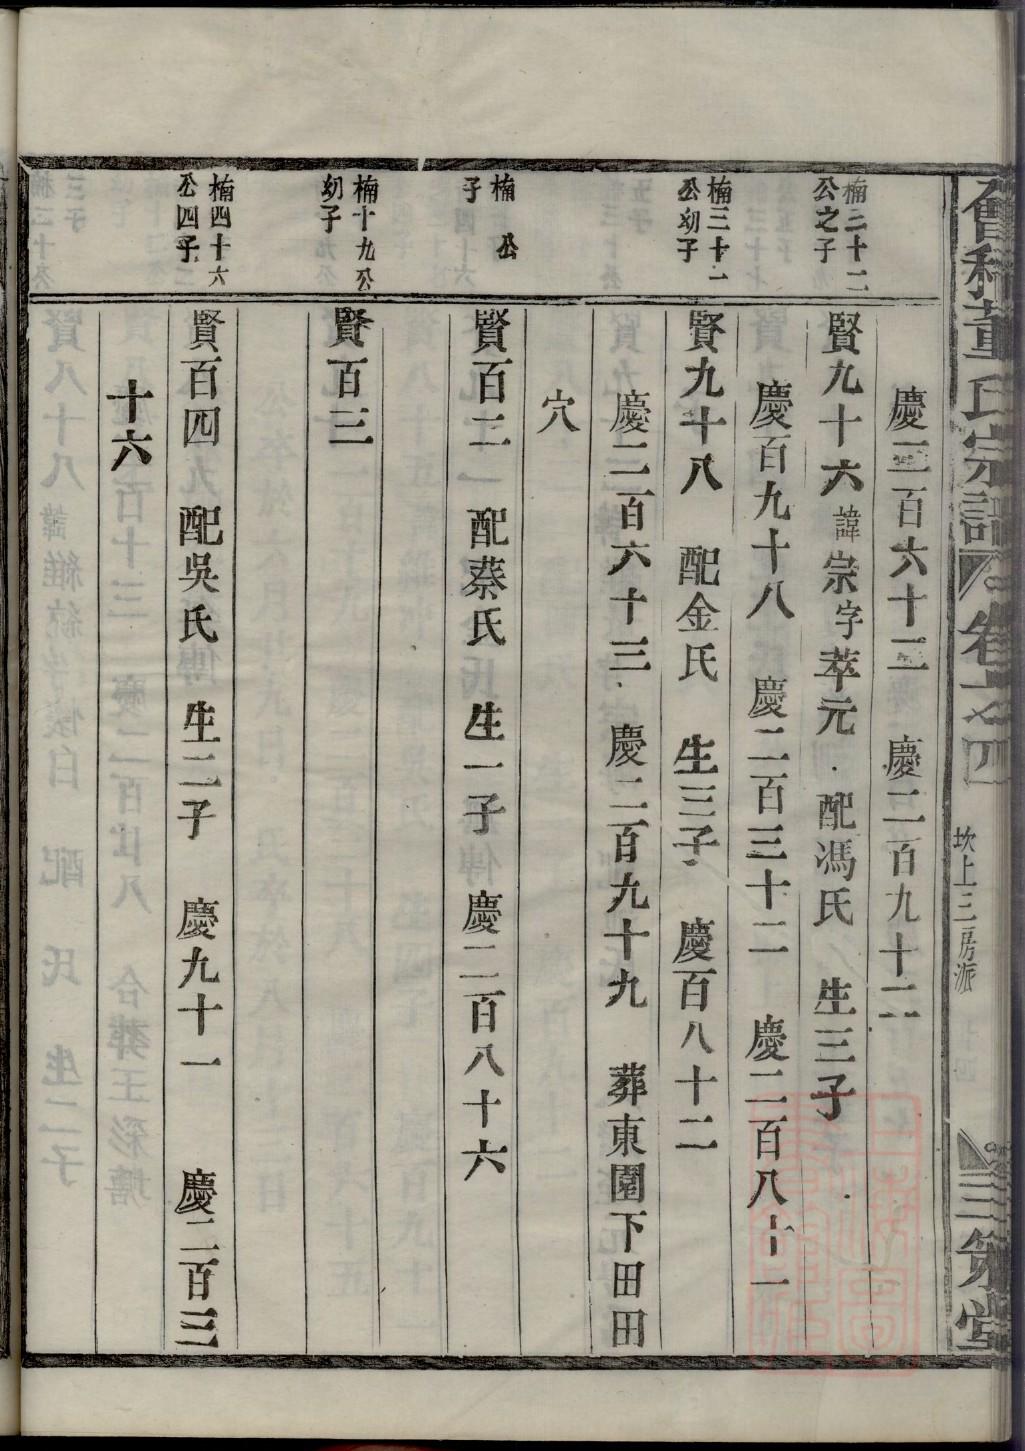 會稽董氏宗譜 卷之四 坎上三房派 三策堂
慶二百六十二 慶二百九十二
楠二十二
公之子
賢九十六諱宗字萃元 配馮氏 生三子
慶百九十八 慶二百三十二 慶二百八十一
楠三十一
公幼子
賢九十八 配金氏 生三子 慶百八十二
慶二百六十三 慶二百九十九 葬東園下田田
穴
楠 公
子
賢百二 配蔡氏 生一子 慶二百八十六
楠十九公
幼子
賢百三
楠四十六
公四子
賢百四 配吳氏 生二子 慶九十一 慶二百三
十六